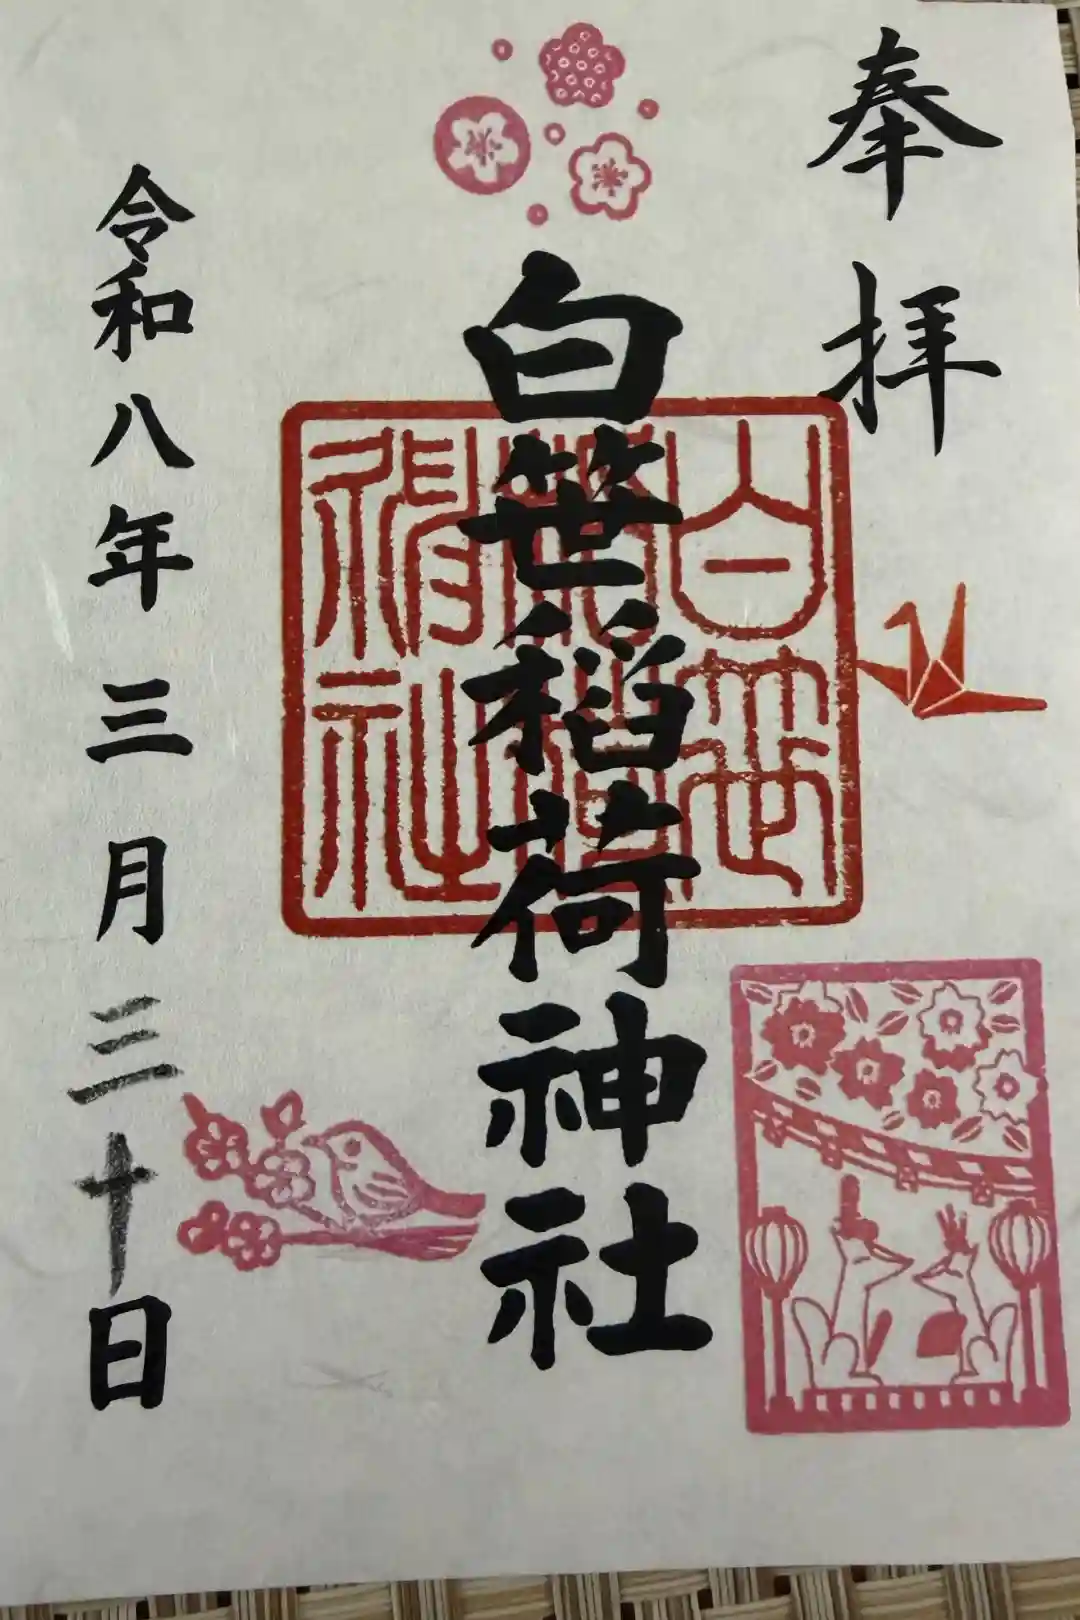 奉拝
白笹稲荷神社
白笹稲荷神社
令和八年三月三十日